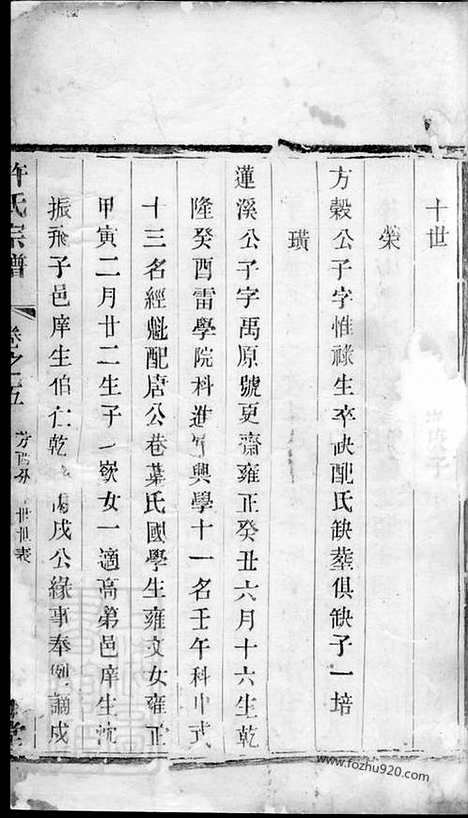 十世
榮
方穀公子字惟祿生卒缺配氏缺葬俱缺子一培
璜
蓮溪公子字禹原號夏齋雍正癸丑六月十六生乾
隆癸酉雷學院科進興學十一名壬午科中式
十三名經魁配唐公巷葉氏國學生雍文女雍正
甲寅二月廿二生子一嶔女一適高弟邑庠生沈
振飛子邑庠生伯仁乾戊公緣事奉例謫戍
許氏宗譜
卷之五
世世表
堂
www.fozhu920.com